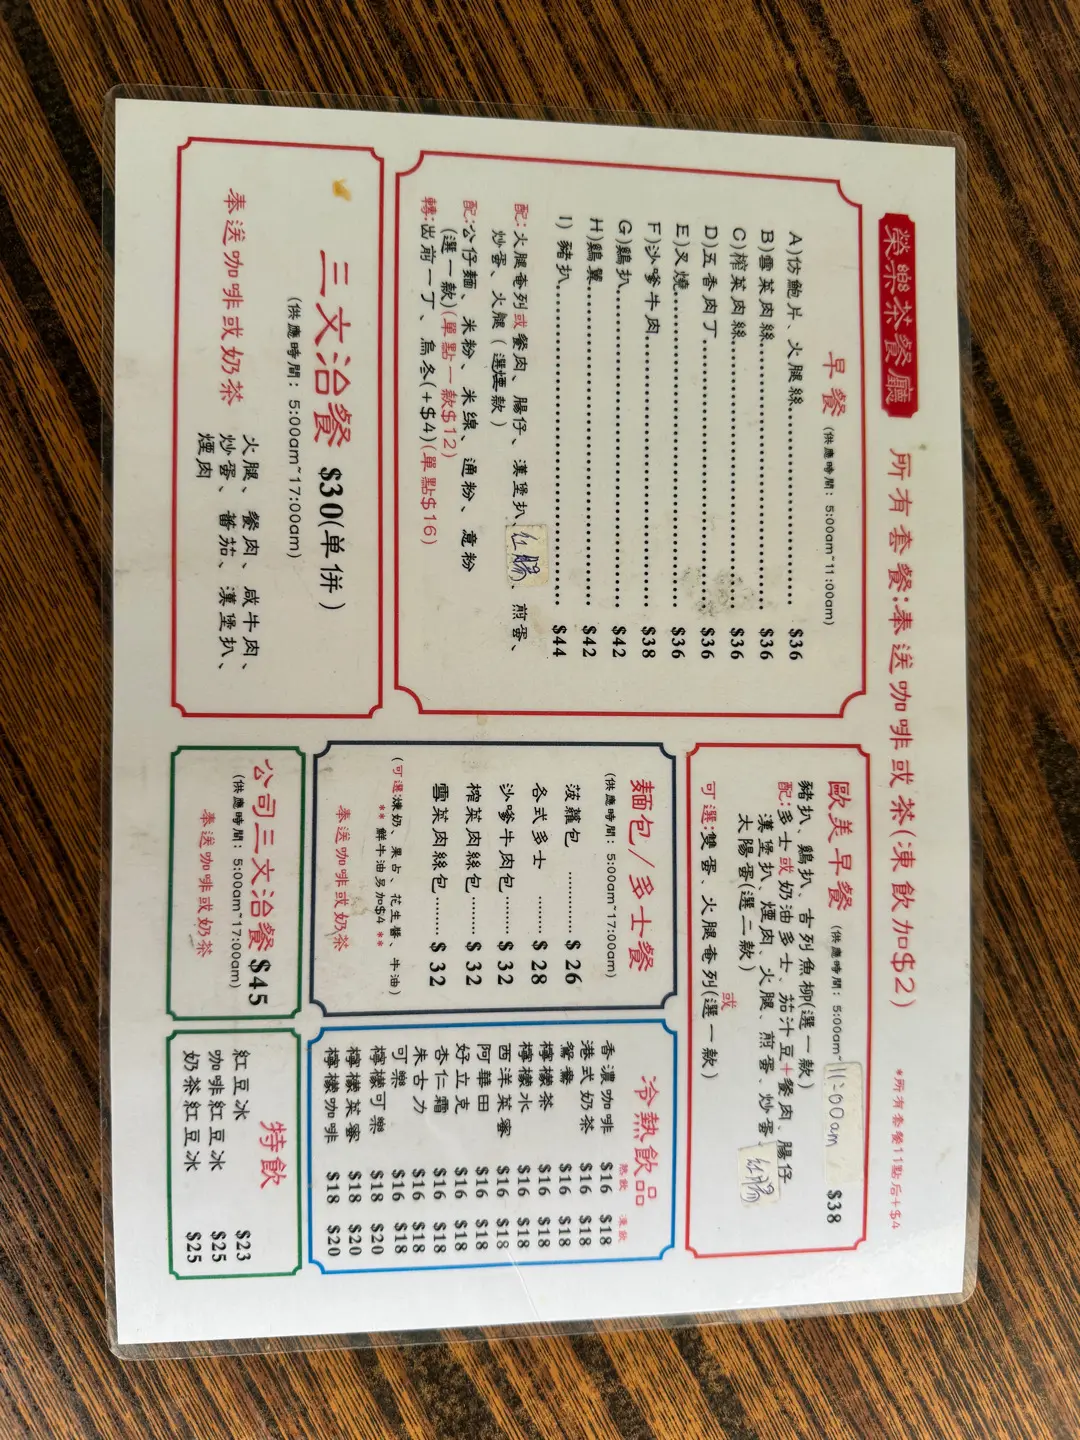 榮樂茶餐廳
所有套餐:奉送咖啡或茶(凍飲加$2)
*所有套餐11點后+$4
早餐 (供應時間: 5:00am~11:00am)
A)仿鮑片、火腿絲............ $36
B)雪菜肉絲............ $36
C)榨菜肉絲............ $36
D)五香肉丁............ $36
E)叉燒............ $36
F)沙嗲牛肉............ $38
G)鷄扒............ $42
H)鷄翼............ $42
I) 豬扒............ $44
配:火腿奄列或餐肉、腸仔、漢堡扒、紅腸、煎蛋、
炒蛋、火腿(選煙款)
配:公仔麵、米粉、米線、通粉、意粉
(選一款)(單點一款$12)
轉:出前一丁、烏冬(+$4)(單點$16)
三文治餐 $30(单併)
(供應時間: 5:00am~17:00am)
奉送咖啡或奶茶
火腿、餐肉、咸牛肉、
炒蛋、蕃茄、漢堡扒、
煙肉
歐美早餐 (供應時間: 5:00am~11:00am $38
豬扒、鷄扒、吉列魚柳(選一款)
配:多士或奶油多士、茄汁豆+餐肉、腸仔
漢堡扒、煙肉、火腿、煎蛋、炒蛋 紅腸
太陽蛋(選二款)
或
可選:雙蛋、火腿奄列(選一款)
麵包/多士餐
(供應時間: 5:00am~17:00am)
菠蘿包 ............ $ 26
各式多士 ......... $ 28
沙嗲牛肉包........ $ 32
榨菜肉絲包........ $ 32
雪菜肉絲包........ $ 32
(可選:煉奶、果占、花生醬、牛油)
** 鮮牛油另加$4 **
奉送咖啡或奶茶
公司三文治餐 $45
(供應時間: 5:00am~17:00am)
奉送咖啡或奶茶
冷熱飲品
熱飲 凍飲
香濃咖啡 $16 $18
港式奶茶 $16 $18
鴛鴦 $16 $18
檸檬茶 $16 $18
檸檬水 $16 $18
西洋菜蜜 $16 $18
阿華田 $16 $18
好立克 $16 $18
杏仁霜 $16 $18
朱古力 $16 $18
可樂 $16 $18
檸檬可樂 $18 $20
檸檬菜蜜 $18 $20
檸檬咖啡 $18 $20
特飲
紅豆冰 $23
咖啡紅豆冰 $25
奶茶紅豆冰 $25